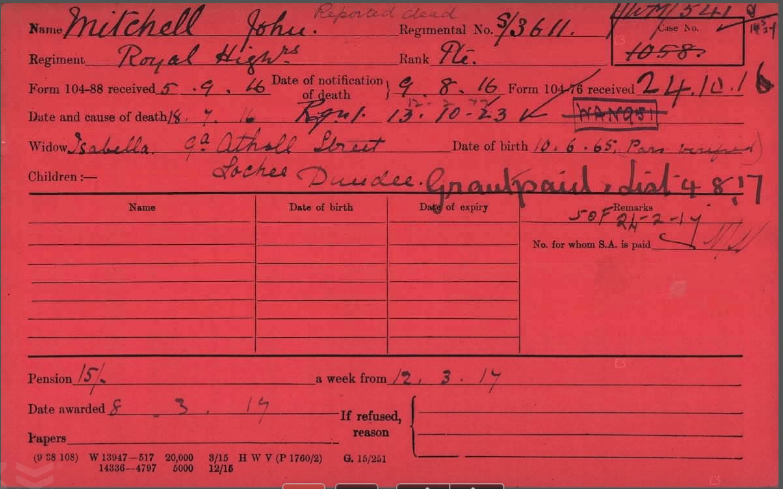 Reported dead
Name Mitchell John. Regimental No. S/3611. Case No.
Regiment Royal Highrs Rank Pte. 1058.
Form 104-88 received 5 . 9 . 16 Date of notification of death } 9 . 8 . 16 Form 104-76 received 24.10.16
Date and cause of death 18. 7. 16 13. 10-23
Widow Isabella. 9a Atholl Street Date of birth 10.6.65.
Lochee Dundee.
Children :— Grant paid. List 4 8.17
Name Date of birth Date of expiry Remarks
SOF 24-2-17
No. for whom S.A. is paid
Pension 15/- a week from 12. 3. 17
Date awarded 8 . 3 . 17 If refused, reason {
Papers
(9 38 108) W 13947—517 20,000 3/15 H W V (P 1760/2) G. 15/251
14336—4797 5000 12/15